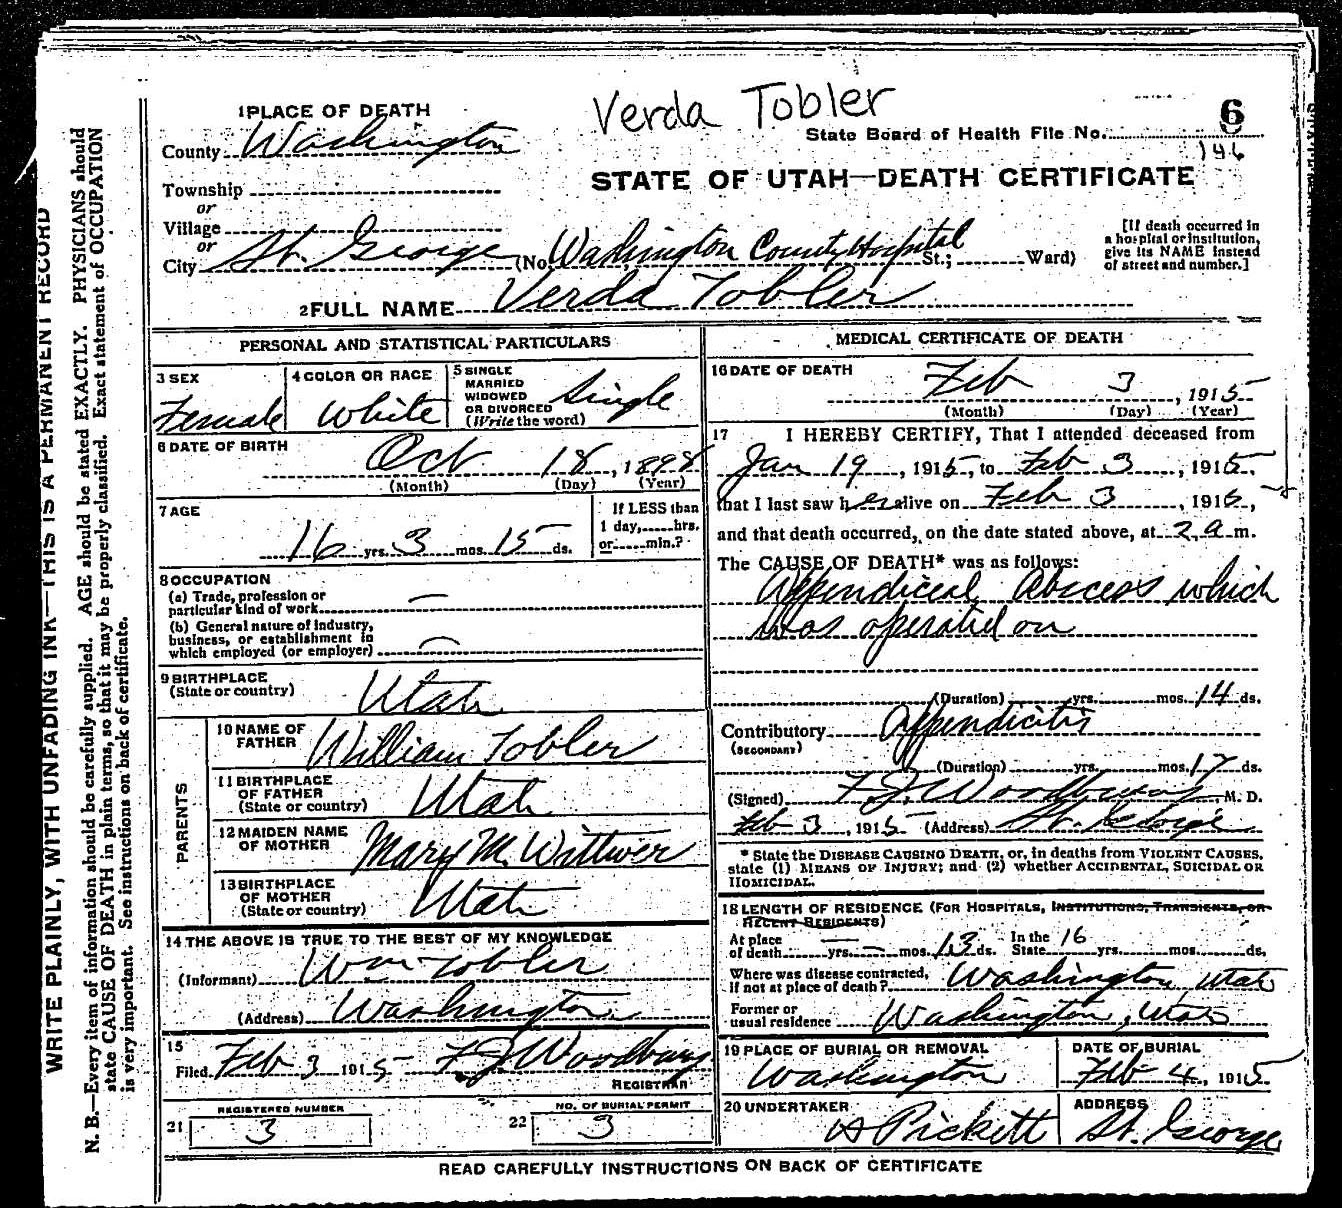 Verda Tobler
6
State Board of Health File No.
146
1 PLACE OF DEATH
County Washington
STATE OF UTAH—DEATH CERTIFICATE
Township
or
Village
or
City St. George (No. Washington County Hospital St.; Ward)
[If death occurred in a hospital or institution, give its NAME instead of street and number.]
2 FULL NAME Verda Tobler
PERSONAL AND STATISTICAL PARTICULARS
3 SEX
Female
4 COLOR OR RACE
White
5 SINGLE
MARRIED
WIDOWED
OR DIVORCED
(Write the word)
Single
6 DATE OF BIRTH
Oct 18, 1898
(Month) (Day) (Year)
7 AGE
16 yrs. 3 mos. 15 ds.
If LESS than
1 day, hrs.
or min.?
8 OCCUPATION
(a) Trade, profession or
particular kind of work —
(b) General nature of industry,
business, or establishment in
which employed (or employer) —
9 BIRTHPLACE
(State or country) Utah
PARENTS
10 NAME OF
FATHER William Tobler
11 BIRTHPLACE
OF FATHER
(State or country) Utah
12 MAIDEN NAME
OF MOTHER Mary M. Wittwer
13 BIRTHPLACE
OF MOTHER
(State or country) Utah
14 THE ABOVE IS TRUE TO THE BEST OF MY KNOWLEDGE
(Informant) Wm Tobler
(Address) Washington
15
Filed Feb 3 1915 F J Woodbury
REGISTRAR
21 REGISTERED NUMBER
3
22 NO. OF BURIAL PERMIT
3
MEDICAL CERTIFICATE OF DEATH
16 DATE OF DEATH
Feb 3, 1915
(Month) (Day) (Year)
17 I HEREBY CERTIFY, That I attended deceased from
Jan 19, 1915, to Feb 3, 1915,
that I last saw her alive on Feb 3, 1915,
and that death occurred, on the date stated above, at 2 a m.
The CAUSE OF DEATH* was as follows:
Appendiceal Abscess which
was operated on
(Duration) yrs. mos. 14 ds.
Contributory Appendicitis
(SECONDARY)
(Duration) yrs. mos. 17 ds.
(Signed) F. J. Woodbury, M. D.
Feb 3, 1915 (Address) St. George
* State the DISEASE CAUSING DEATH, or, in deaths from VIOLENT CAUSES,
state (1) MEANS OF INJURY; and (2) whether ACCIDENTAL, SUICIDAL OR
HOMICIDAL.
18 LENGTH OF RESIDENCE (FOR HOSPITALS, INSTITUTIONS, TRANSIENTS, OR
RECENT RESIDENTS)
At place
of death — yrs. — mos. 13 ds. In the
State 16 yrs. mos. ds.
Where was disease contracted,
if not at place of death? Washington, Utah
Former or
usual residence Washington, Utah
19 PLACE OF BURIAL OR REMOVAL
Washington
DATE OF BURIAL
Feb 4, 1915
20 UNDERTAKER
A Pickett
ADDRESS
St. George
READ CAREFULLY INSTRUCTIONS ON BACK OF CERTIFICATE
WRITE PLAINLY, WITH UNFADING INK—THIS IS A PERMANENT RECORD
N. B.—Every item of information should be carefully supplied. AGE should be stated EXACTLY. PHYSICIANS should
state CAUSE OF DEATH in plain terms, so that it may be properly classified. Exact statement of OCCUPATION
is very important. See instructions on back of certificate.